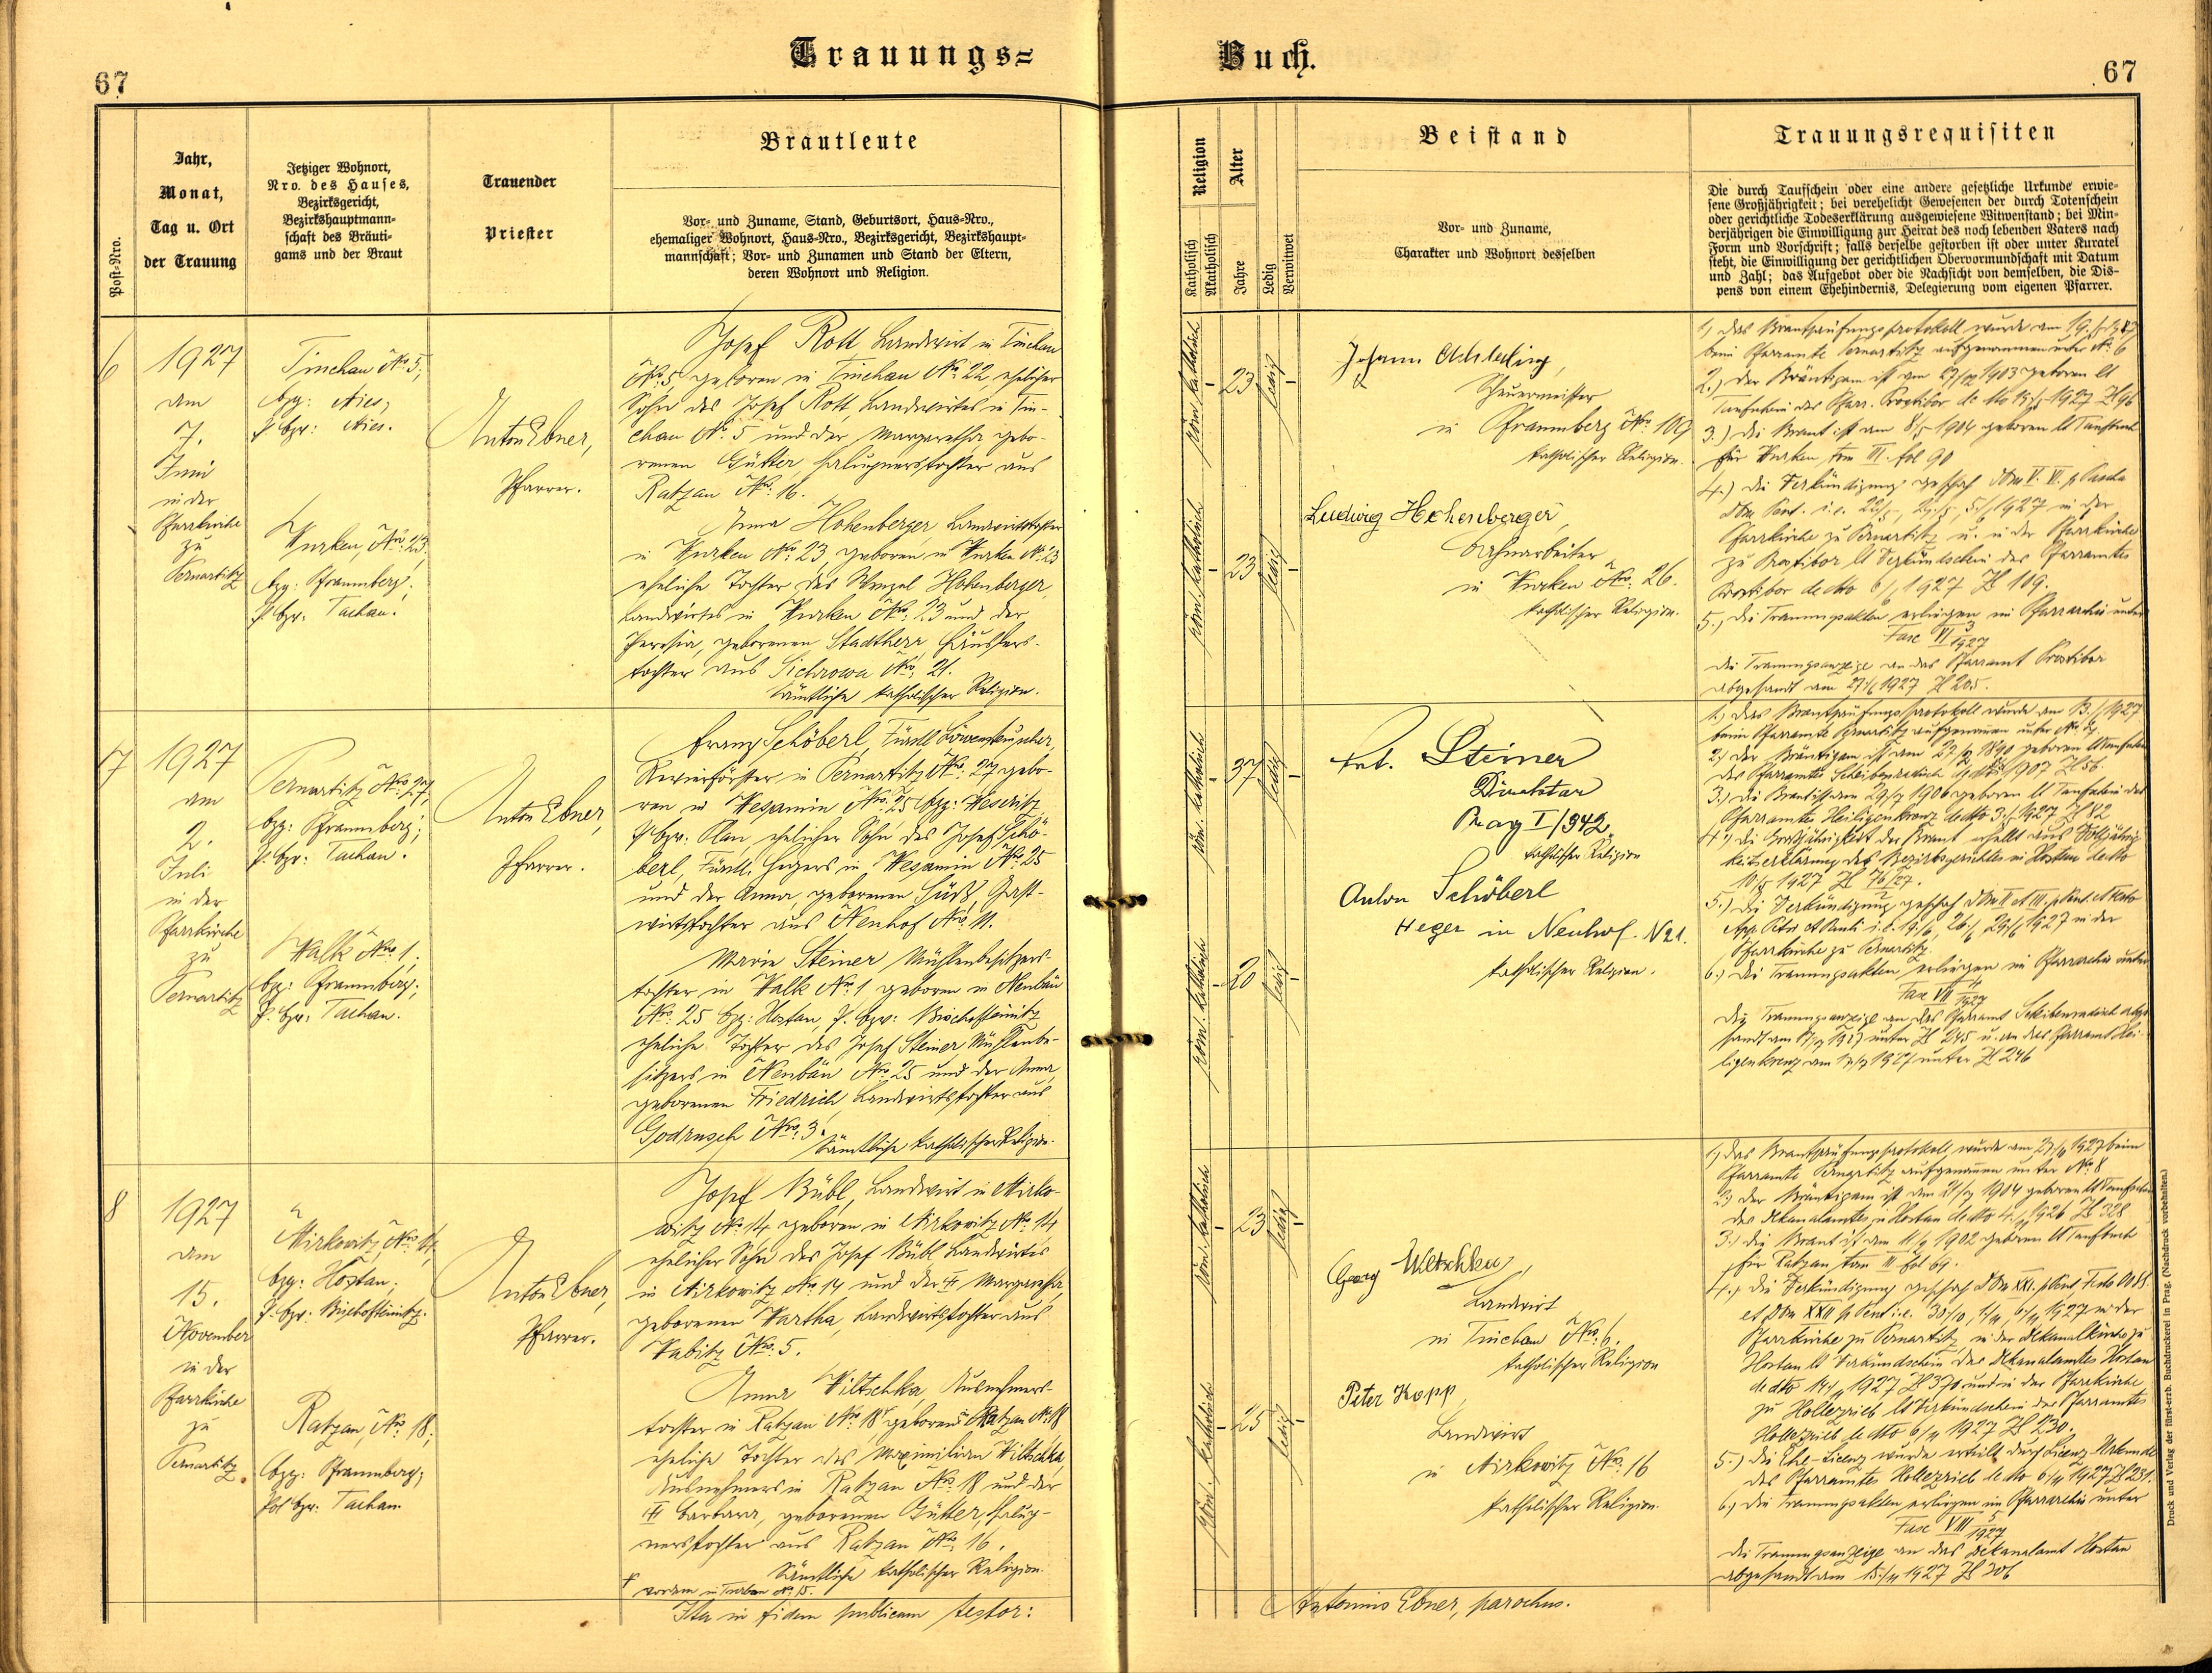 Trauungs=
Buch.
67
67
Post-Nro.
Jahr,
Monat,
Tag u. Ort
der Trauung
Jetziger Wohnort,
Nro. des Hauses,
Bezirksgericht,
Bezirkshauptmann-
schaft des Bräuti-
gams und der Braut
Trauender
Priester
Brautleute
Vor- und Zuname, Stand, Geburtsort, Haus-Nro.,
ehemaliger Wohnort, Haus-Nro., Bezirksgericht, Bezirkshaupt-
mannschaft; Vor- und Zunamen und Stand der Eltern,
deren Wohnort und Religion.
Religion
Katholisch
Akatholisch
Alter
Jahre
Ledig
Verwitwet
Beistand
Vor- und Zuname,
Charakter und Wohnort desselben
Trauungsrequisiten
Die durch Taufschein oder eine andere gesetzliche Urkunde erwie-
sene Großjährigkeit; bei verehelicht Gewesenen der durch Totenschein
oder gerichtliche Todeserklärung ausgewiesene Witwenstand; bei Min-
derjährigen die Einwilligung zur Heirat des noch lebenden Vaters nach
Form und Vorschrift; falls derselbe gestorben ist oder unter Kuratel
steht, die Einwilligung der gerichtlichen Obervormundschaft mit Datum
und Zahl; das Aufgebot oder die Nachsicht von demselben, die Dis-
pens von einem Ehehindernis, Delegierung vom eigenen Pfarrer.
6
1927
am
7.
Juni
in der
Pfarrkirche
zu
Pernartitz
Tinchau Nro. 5;
bzg: Mies;
p. bzv: Mies.
Wurken, Nro. 23;
bzg: Pfraumberg;
p. bzv: Tachau.
Anton Ebner,
Pfarrer.
Josef Rott Landwirt in Tinchau
Nro. 5, geboren in Tinchau Nro. 22, ehelicher
Sohn des Josef Rott, Landwirtes in Tin-
chau Nro. 5 und der Margaretha gebo-
renen Gütter, Chalupnerstochter aus
Ratzau Nro. 16.
Anna Hohenberger, Landwirtstochter
in Wurken Nro. 23, geboren in Wurken Nro. 23
eheliche Tochter des Wenzel Hohenberger
Landwirtes in Wurken Nro. 23 und der
Theresia, geborenen Stadtherr, Häuslers-
tochter aus Sichrowa Nro. 21.
Sämtliche katholischer Religion.
röm. katholisch
23
ledig
röm. katholisch
23
ledig
Johann
in Pfraumberg Nro. 109
katholischer Religion.
Ludwig Hohenberger,
Bahnarbeiter
in Wurken Nro. 26.
katholischer Religion.
1.) Das Brautprüfungsprotokoll wurde am 19./5. 1927
beim Pfarramte Pernartitz aufgenommen unter No. 6
2.) Der Bräutigam ist am 1903 geboren lt
Taufschein des Pfarr. Prostibor de dto 1927 Zl 96
3.) Die Braut ist am 8/5 1904 geboren lt Taufbuch
für Wurken, tom III. fol 90
4.) Die Verkündigung geschah Dom V. VI. p Pascha
Dom Pent. i.e. 22/5, 29/5, 5/6 1927 in der
Pfarrkirche zu Pernartitz u. in der Pfarrkirche
zu Prostibor lt Verkündschein des Pfarramtes
Prostibor de dto 6/6 1927 Zl 109.
5.) Die Trauungsakten erliegen im Pfarrarchiv unter
Fasc VI 3/1927
Die Trauungsanzeige an das Pfarramt Prostibor
abgesandt am 1927 Zl 205.
7
1927
am
2.
Juli
in der
Pfarrkirche
zu
Pernartitz
Pernartitz Nro. 27;
bzg: Pfraumberg;
p. bzv: Tachau.
Walk Nro. 1;
bzg: Pfraumberg;
p. bzv: Tachau.
Anton Ebner,
Pfarrer.
Franz Schöberl, Fürstl Löwensteinscher
Revierförster in Pernartitz Nro. 27, gebo-
ren in Wesamin Nro. 25 bzg: Weseritz
p bzv: Plan, ehelicher Sohn des Josef Schö-
berl, Fürstl. Hegers in Wesamin Nro. 25
und der Anna, geborenen Süß, Gast-
wirtstochter aus Neuhof Nro. 11.
Marie Steiner Mühlenbesitzers-
tochter in Walk Nro. 1 geboren in Neubäu
Nro. 25 bzg: Hostau, p. bzv: Bischofteinitz
eheliche Tochter des Josef Steiner Mühlenbe-
sitzers in Neubäu Nro. 25 und der Anna
geborenen Friedrich Landwirtstochter aus
Godrusch Nro. 3.
Sämtliche katholischer Religion.
röm. katholisch
37
ledig
röm. katholisch
20
ledig
Steiner
Direktor
Prag I/942
katholischer Religion
Anton Schöberl
Heger in Neuhof N 21.
katholischer Religion.
1.) Das Brautprüfungsprotokoll wurde am 1927
beim Pfarramte Pernartitz aufgenommen unter No. 7.
2.) Der Bräutigam ist am 1890 geboren lt Taufschein
des Pfarramtes Scheibenradisch de dto 1907 Zl 56.
3.) Die Braut ist am 29/7 1906 geboren lt Taufschein des
Pfarramtes Heiligenkreuz de dto 1927 Zl 82
4.) Die Großjährigkeit der Braut erhellt aus Volljährig-
keitserklärung des Bezirksgerichtes in Hostau de dto
10/5 1927
5.) Die Verkündigung geschah Dom II et III. p Pent. et Festo
App. Petri et Pauli i.e. 19/6, 26/6, 29/6 1927 in der
Pfarrkirche zu Pernartitz
6.) Die Trauungsakten erliegen im Pfarrarchiv unter
Fasc VII 4/1927
Die Trauungsanzeige an das Pfarramt Scheibenradisch abge-
sandt am 1927 unter Zl 245 u. an das Pfarramt Hei-
ligenkreuz am 1927 unter Zl 246
8
1927
am
15.
November
in der
Pfarrkirche
zu
Pernartitz
Mirkowitz Nro. 14,
bzg: Hostau;
p. bzv: Bischofteinitz.
Ratzau, Nro. 18;
bzg: Pfraumberg;
pol bzv: Tachau
Anton Ebner,
Pfarrer.
Josef Bübl, Landwirt in Mirko-
witz No. 14, geboren in Mirkowitz No. 14
ehelicher Sohn des Josef Bübl Landwirtes
in Mirkowitz No. 14 und der Margaretha,
geborenen Wartha, Landwirtstochter aus
Wabitz Nro. 5.
Anna Wiltschka, Ausnehmers-
tochter in Ratzau Nro. 18 geboren in Ratzau No. 18
eheliche Tochter des Maximilian Wiltschka,
Ausnehmers in Ratzau Nro. 18 und der
Barbara, geborenen Gütter, Chalup-
nerstochter aus Ratzau Nro. 16.
Sämtliche katholischer Religion.
Ita in fidem publicam testor:
röm. katholisch
23
ledig
röm. katholisch
25
ledig
Georg
Landwirt
in Tinchau Nro. 6.
katholischer Religion
Peter Kopp,
Landwirt
in Mirkowitz Nro. 16
katholischer Religion.
1.) Das Brautprüfungsprotokoll wurde am 1927 beim
Pfarramte Pernartitz aufgenommen unter No. 8
2.) Der Bräutigam ist am 1904 geboren lt Taufschein
des Dekanalamtes in Hostau de dto 1926 Zl 328
3.) Die Braut ist am 1902 geboren lt Taufbuch
für Ratzau, tom III fol 69.
4.) Die Verkündigung geschah Dom XXI. p Pent,
et Dom XXII p Pent i.e. 30/10, 1/11, 6/11 1927 in der
Pfarrkirche zu Pernartitz, in der Dekanalkirche zu
Hostau lt Verkündschein des Dekanalamtes Hostau
de dto 14/11 1927 Zl 370 und in der Pfarrkirche
zu Hollezrieb lt Verkündschein des Pfarramtes
Hollezrieb de dto 6/11 1927 Zl 230.
5.) Die Ehe-Licenz wurde erteilt durch Licenz-Urkunde
des Pfarramtes Hollezrieb de dto 6/11 1927 Zl 231.
6.) Die Trauungsakten erliegen im Pfarrarchiv unter
Fasc VIII 5/1927
Die Trauungsanzeige an das Dekanalamt Hostau
abgesandt am 15/11 1927 Zl 306
Antonius Ebner, parochus.
Druck und Verlag der fürst-erzb. Buchdruckerei in Prag. (Nachdruck vorbehalten.)